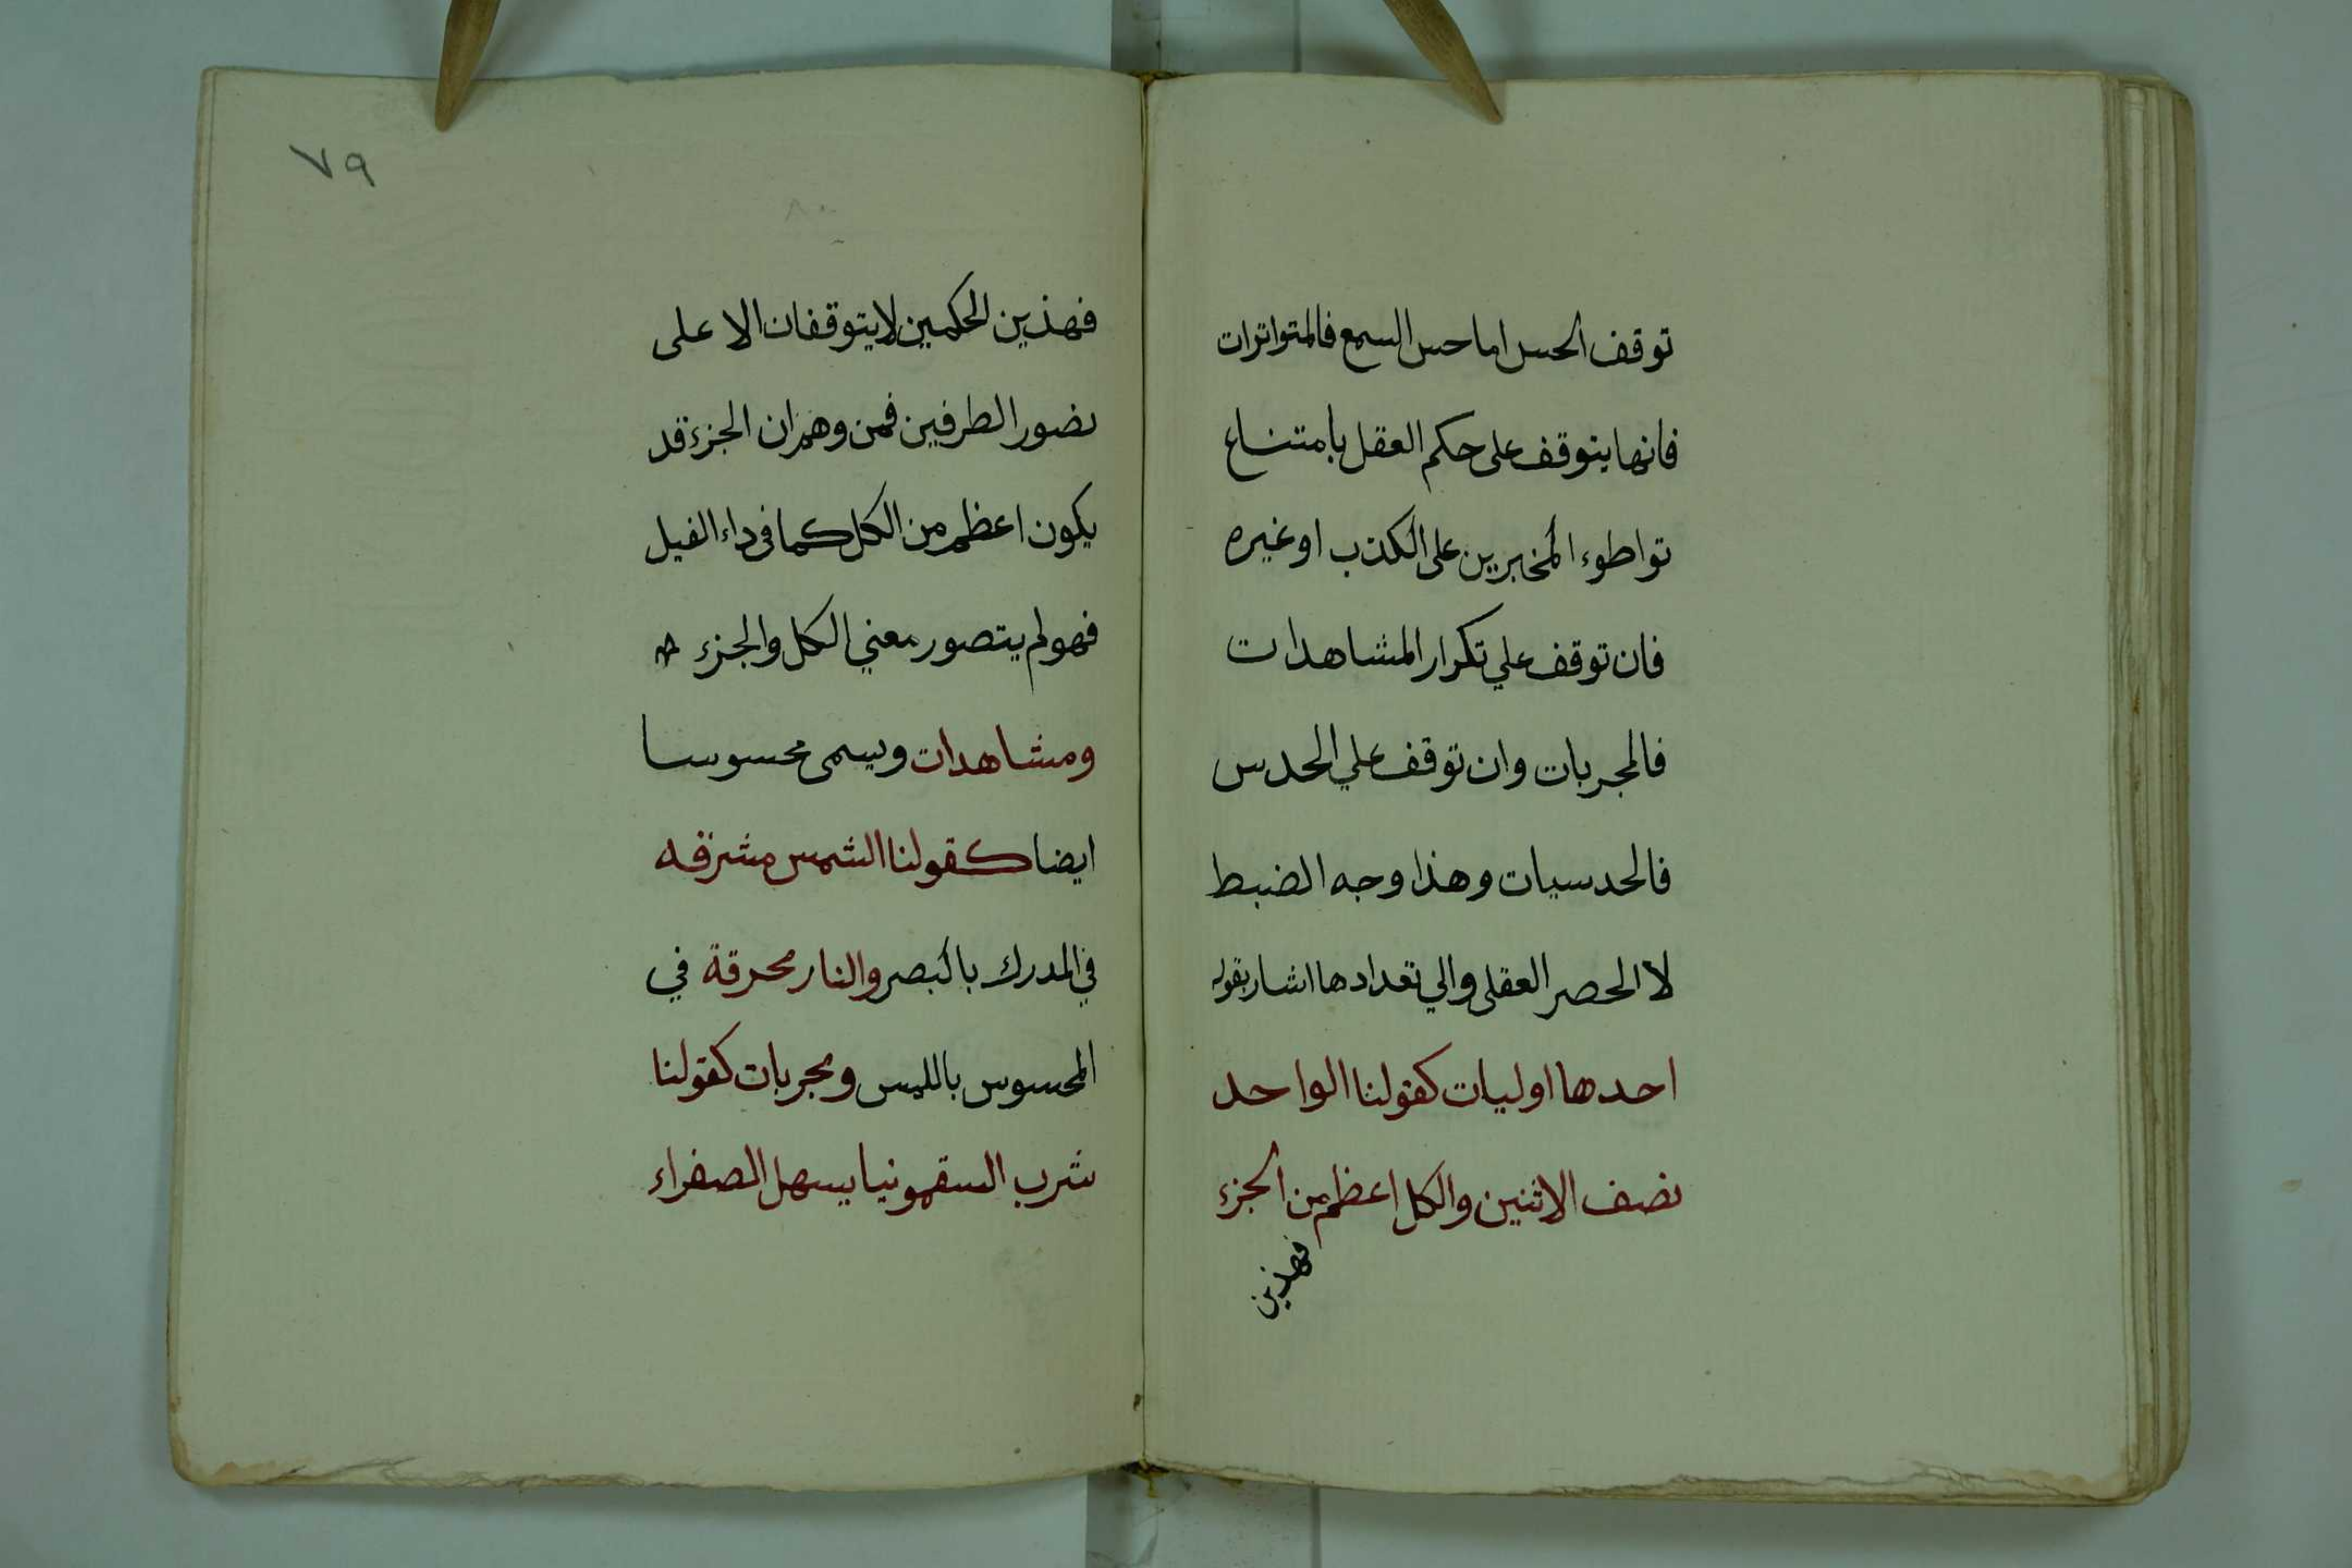 توقف الحس اما حس السمع فالمتواترات
فانها يتوقف على حكم العقل بامتناع
تواطوء المخبرين على الكذب او غيره
فان توقف علي تكرار المشاهدات
فالمجربات وان توقف علي الحدس
فالحدسيات وهذا وجه الضبط
لا الحصر العقلى والي تعدادها اشار بقوله
احدها اوليات كقولنا الواحد
نصف الاثنين والكل اعظم من الجزء
فهذين
٧٩
٨٠
فهذين الحكمين لا يتوقفان الا على
تصور الطرفين فمن وهم ان الجزء قد
يكون اعظم من الكل كما فى داء الفيل
فهو لم يتصور معني الكل والجزء
ومشاهدات ويسمى محسوسا
ايضا كقولنا الشمس مشرقه
في المدرك بالبصر والنار محرقة في
المحسوس باللمس ومجربات كقولنا
شرب السقمونيا يسهل الصفراء